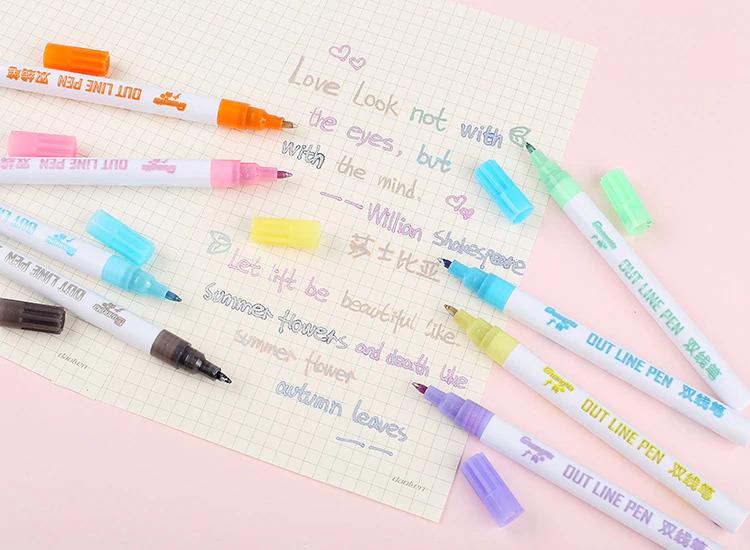 Love Look not with
the eyes, but
with the mind.
Willian Shakespeare
莎士比亚
Let lift be beautiful like
summer flowers and death like
summer flower
autumn leaves
OUT LINE PEN 双线笔
OUT LINE PEN 双线笔
OUT LINE PEN
OUT LINE PEN
OUT LINE PEN 双线笔
OUT LINE PEN 双线笔
OUT LINE PEN 双线笔
OUT LINE PEN 双线笔